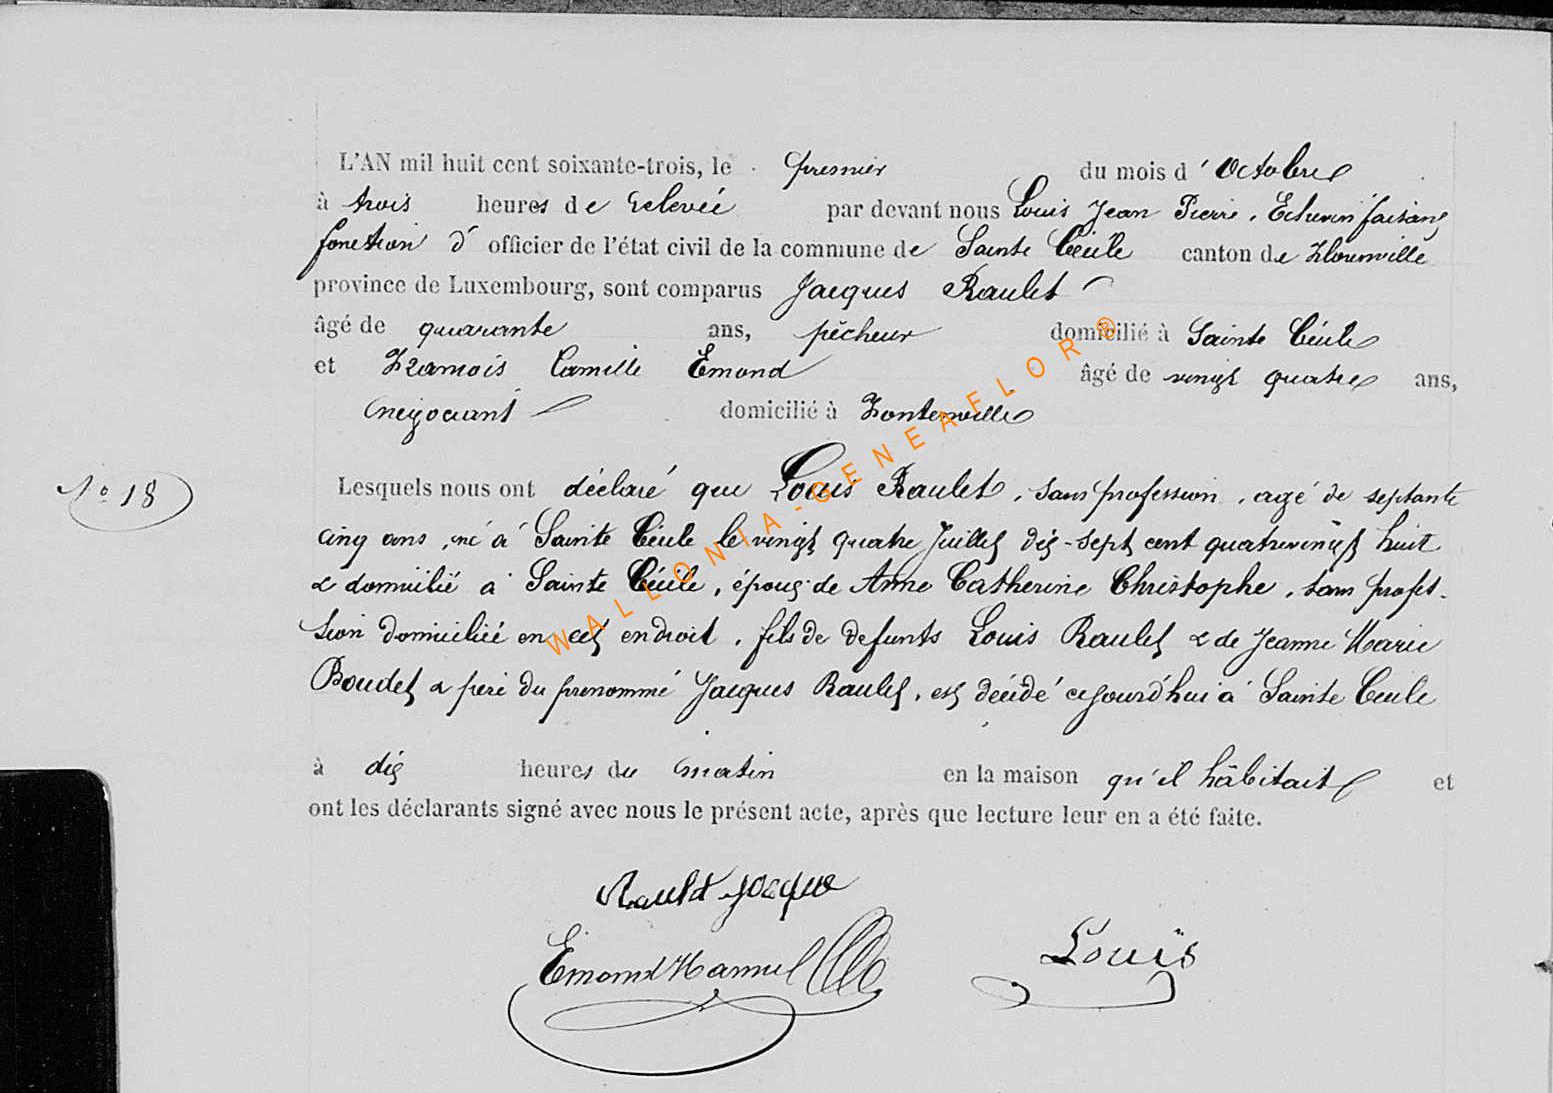 L'AN mil huit cent soixante-trois, le premier du mois d'Octobre
à trois heures de relevée par devant nous Louis Jean Pierre, Echevin faisant
fonction d' officier de l'état civil de la commune de Sainte Cécile canton de Florenville
province de Luxembourg, sont comparus Jacques Raulet
âgé de quarante ans, pêcheur domicilié à Sainte Cécile
et François Camille Emond âgé de vingt quatre ans,
négociant domicilié à Fontenoille
N° 18
Lesquels nous ont déclaré que Louis Raulet, sans profession, agé de septante
cinq ans, né à Sainte Cécile le vingt quatre Juillet dix-sept cent quatrevingt huit
& domicilié à Sainte Cécile, époux de Anne Catherine Christophe, sans profes-
sion domiciliée en cet endroit, fils de defunts Louis Raulet & de Jeanne Marie
Boudet & père du prenommé Jacques Raulet, est décédé cejourd'hui à Sainte Cécile
à dix heures du matin en la maison qu'il hâbitait et
ont les déclarants signé avec nous le présent acte, après que lecture leur en a été faite.
Raulet Jacque
Emond Louis
WALLONIA-GENEAFLOR®